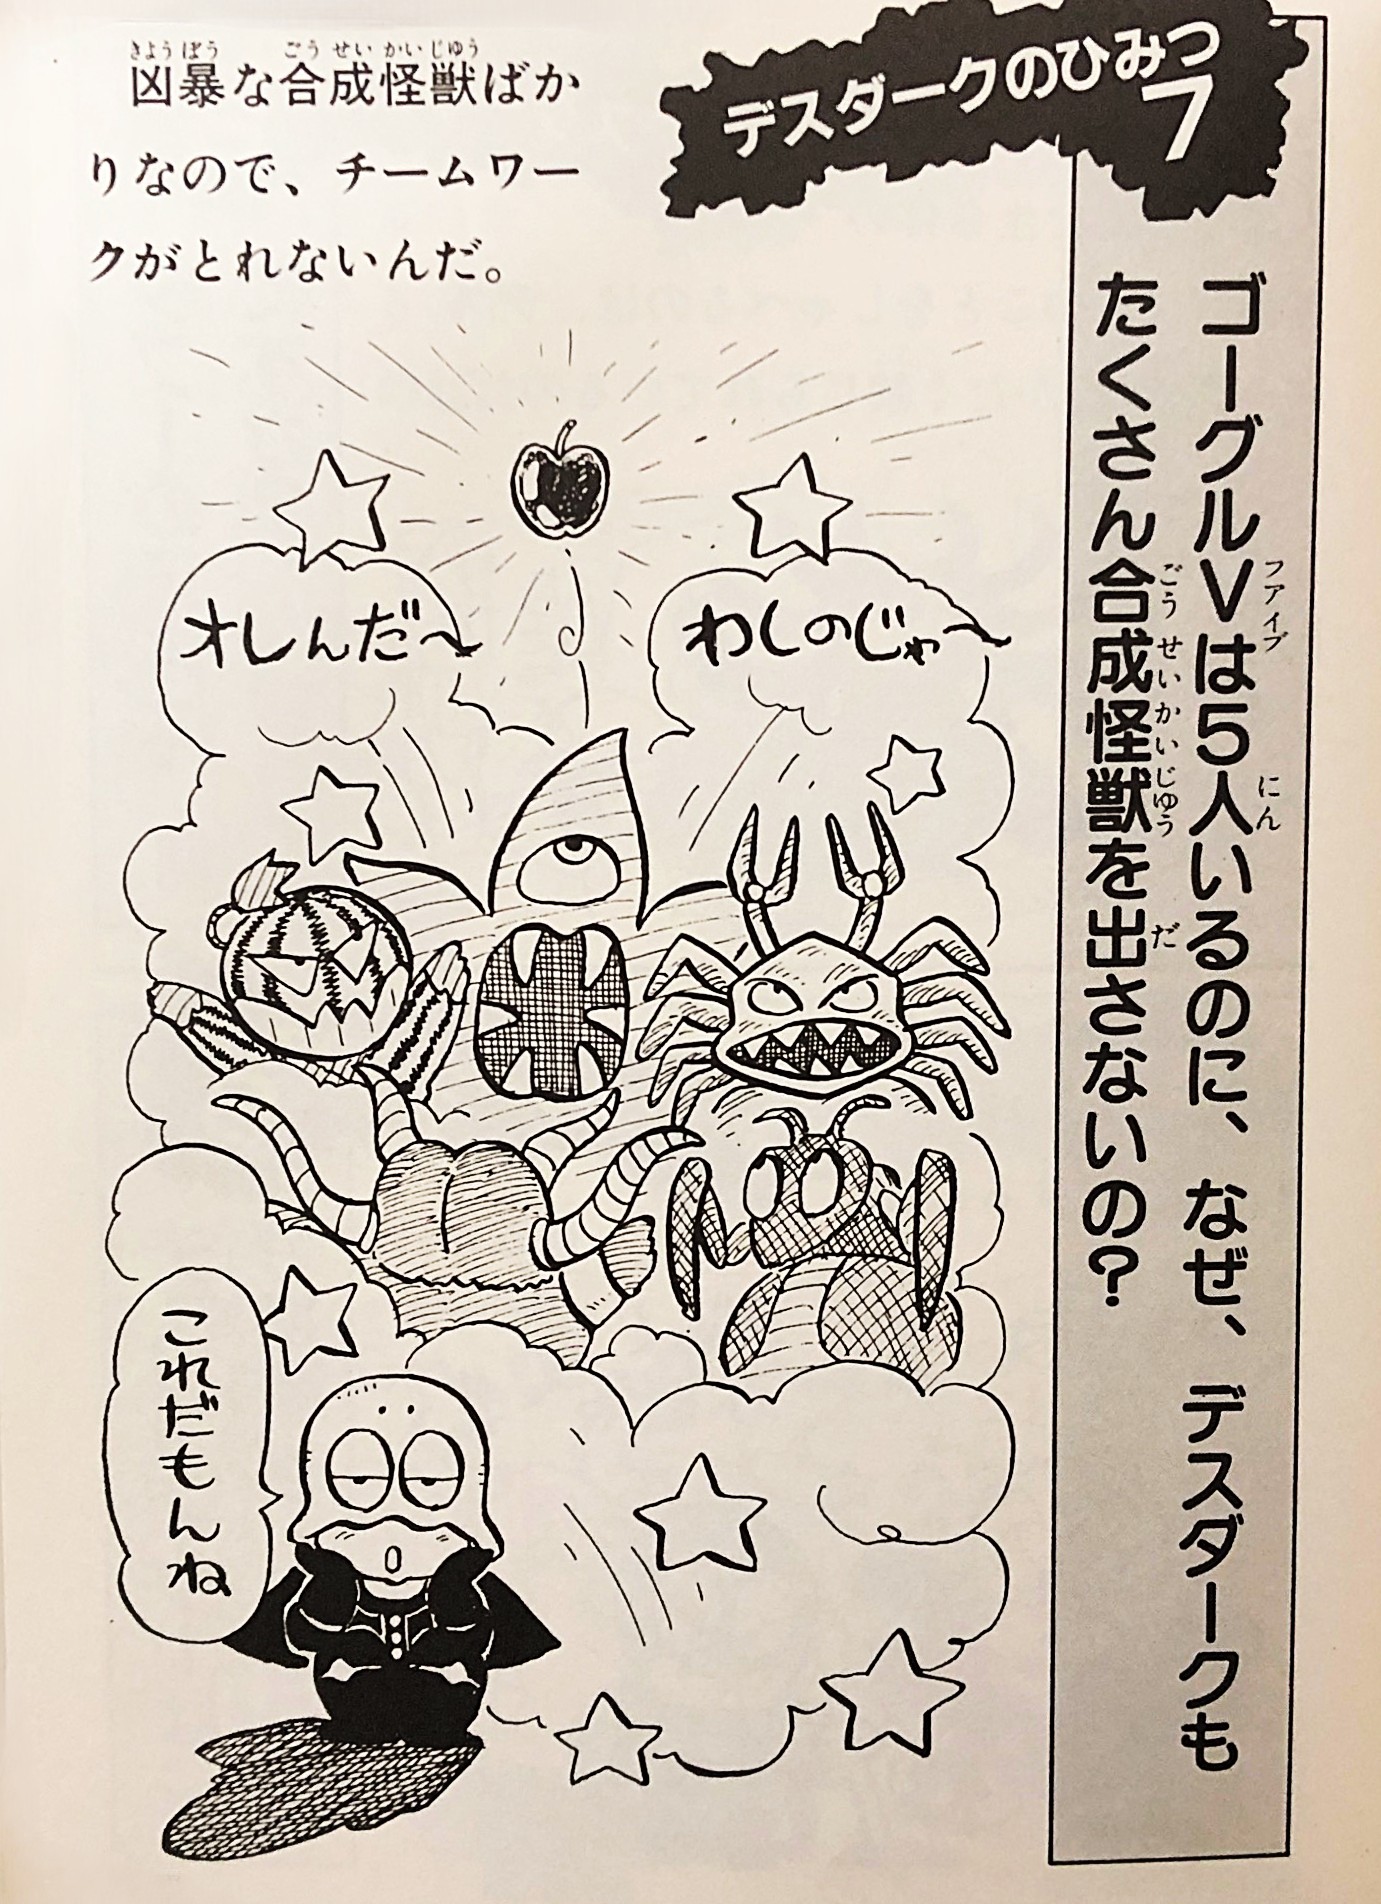 デスダークのひみつ
7
ゴーグルVは5人いるのに、なぜ、デスダークも
ファイブ
にん
たくさん合成怪獣を出さないの?
ごうせいかいじゅう
だ
きょうぼう
ごうせいかいじゅう
凶暴な合成怪獣ばか
りなので、チームワー
クがとれないんだ。
わしのじゃ〜
オレんだ〜
これだもんね